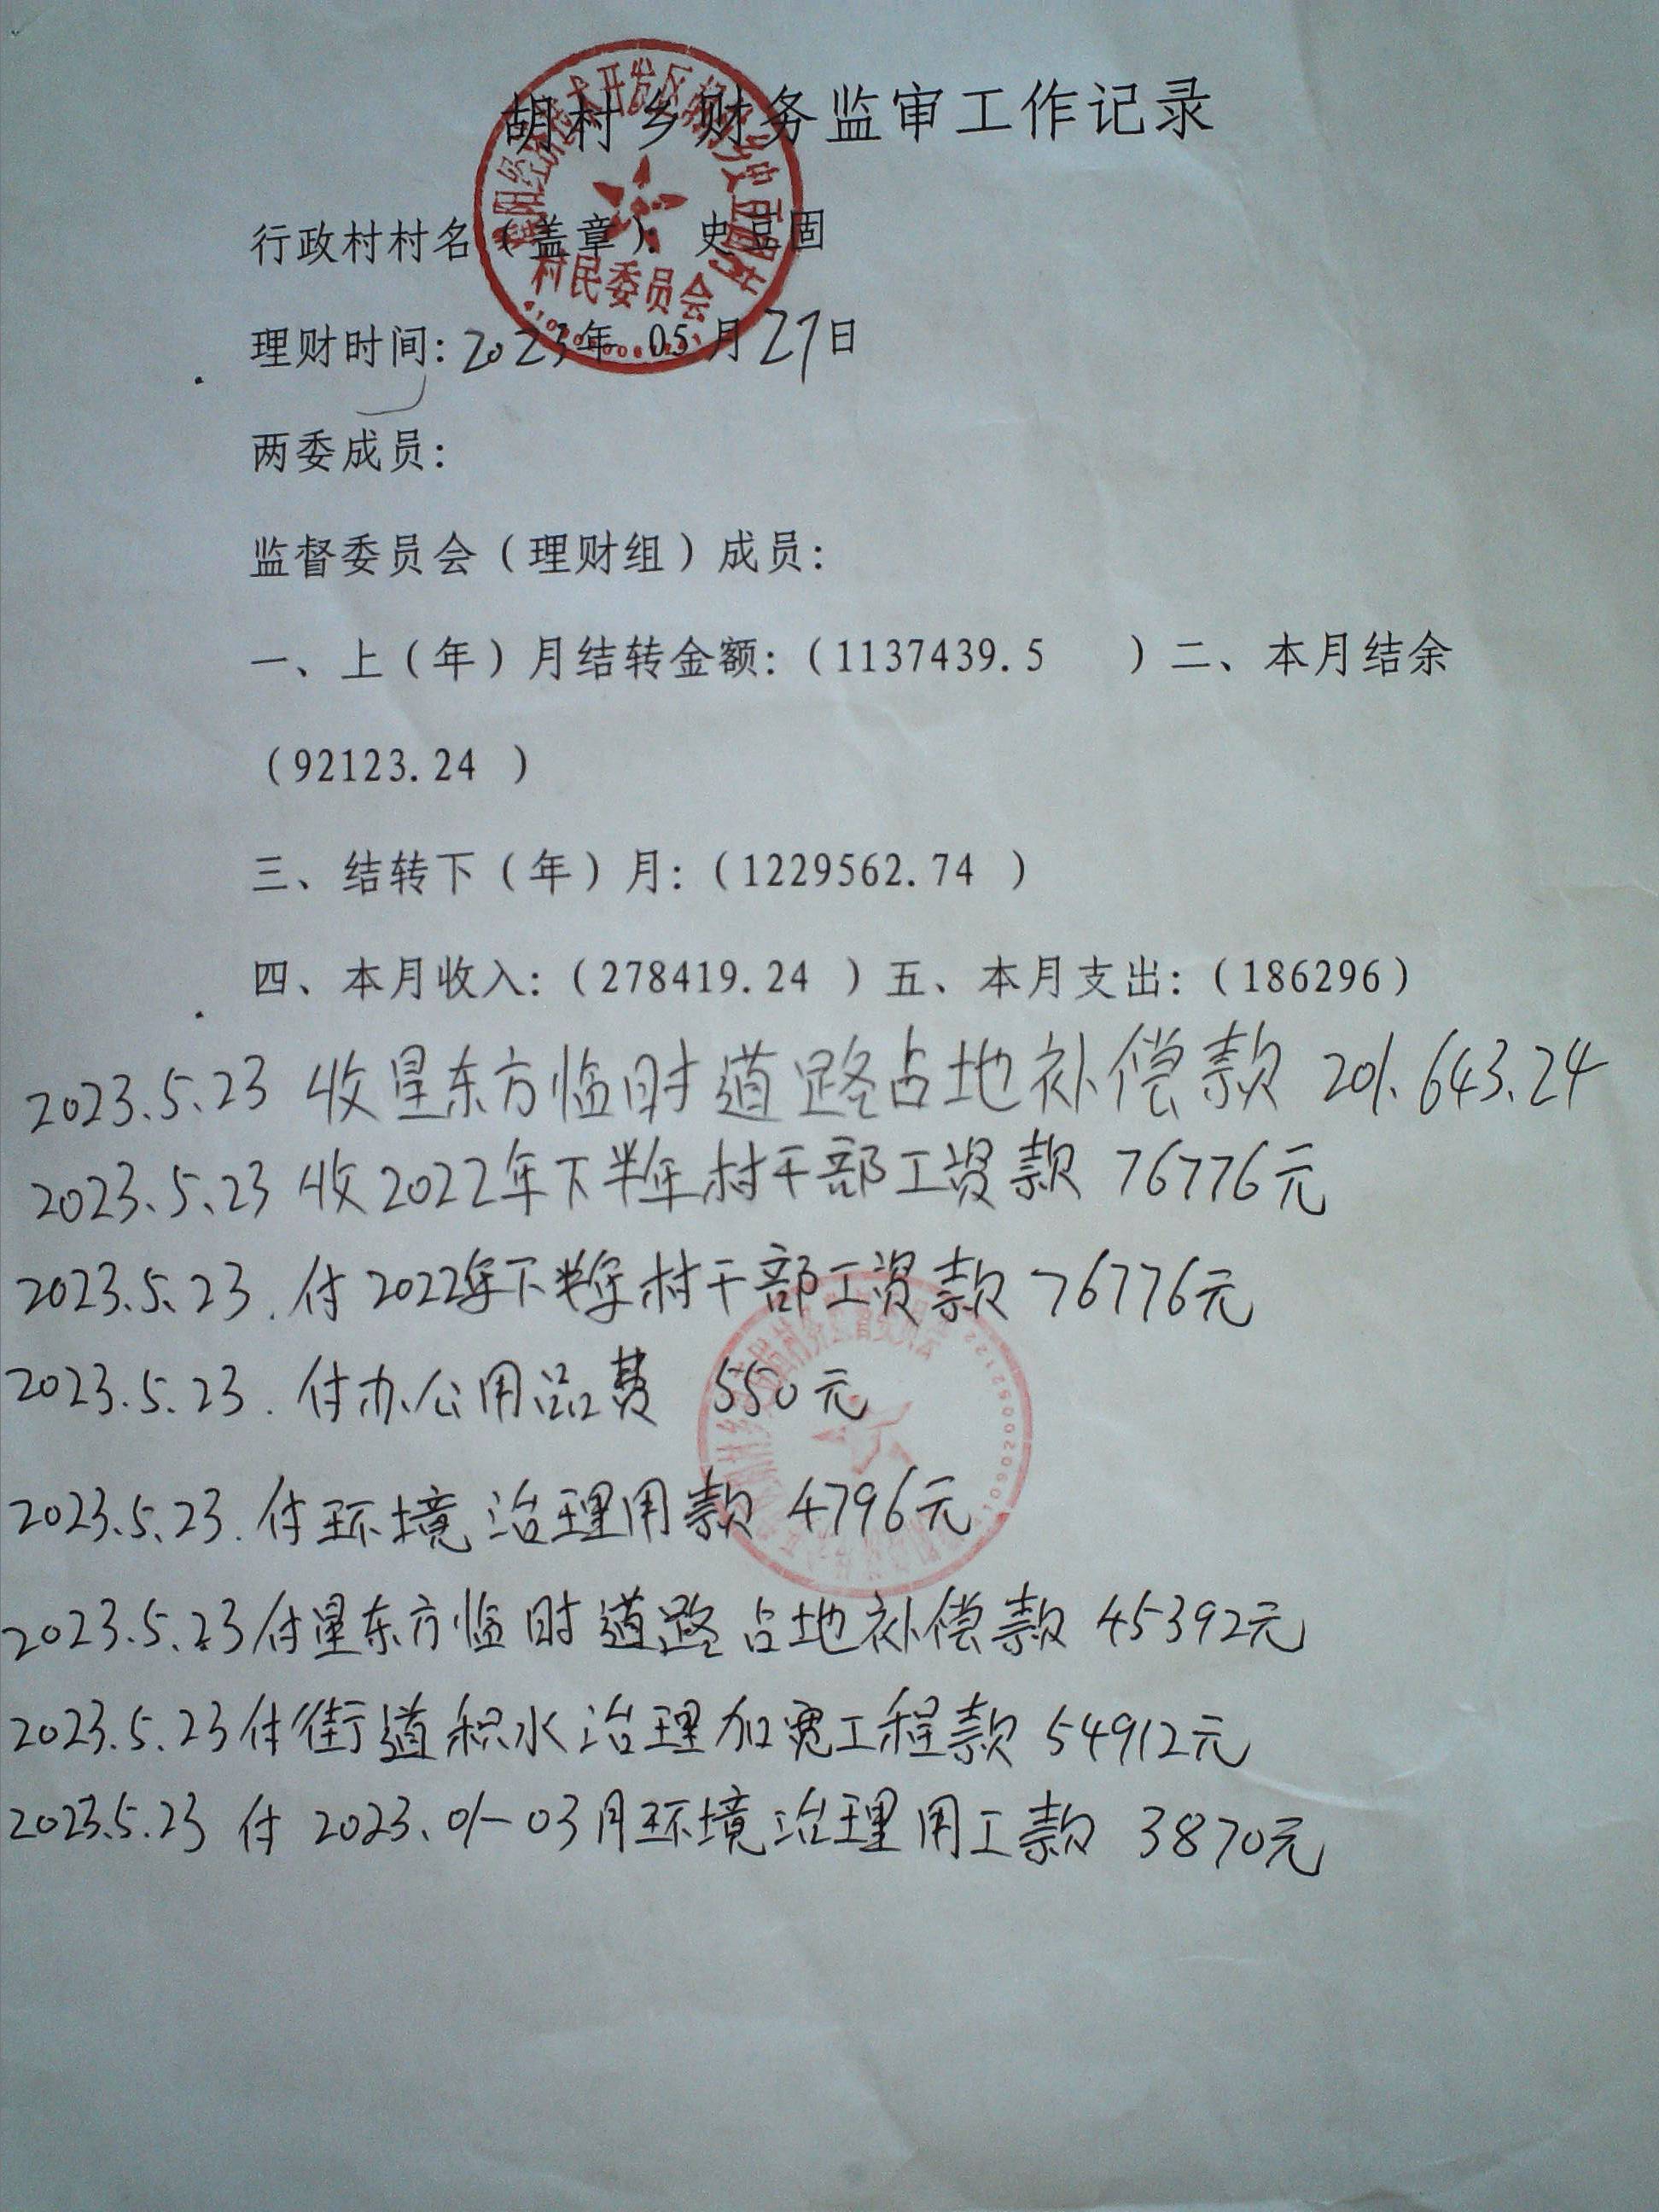 胡村乡财务监审工作记录
行政村村名（盖章）：史豆固
村民委员会
理财时间：2023年 05月27日
两委成员：
监督委员会（理财组）成员：
一、上（年）月结转金额：（1137439.5 ）二、本月结余
（92123.24 ）
三、结转下（年）月：（1229562.74 ）
四、本月收入：（278419.24 ）五、本月支出：（186296）
2023.5.23 收星东方临时道路占地补偿款 201.643.24
2023.5.23 收2022年下半年村干部工资款 76776元
2023.5.23. 付2022年下半年村干部工资款 76776元
2023.5.23. 付办公用品费 550元
2023.5.23. 付环境治理用款 4796元
2023.5.23付星东方临时道路占地补偿款 45392元
2023.5.23付街道积水治理加宽工程款 54912元
2023.5.23 付 2023.01-03月环境治理用工款 3870元